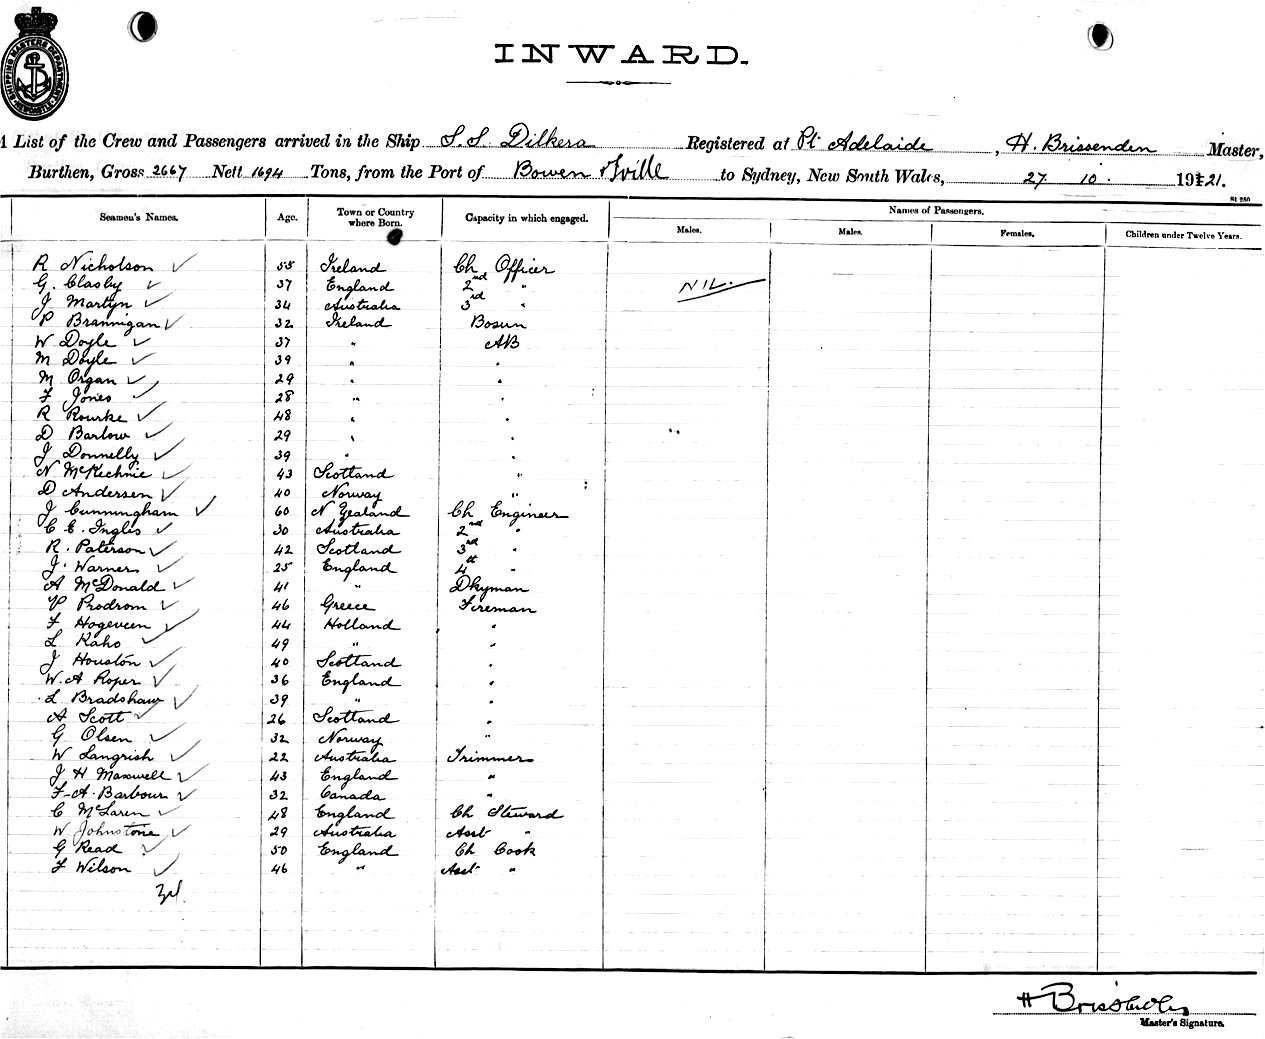 SHIPPING MASTERS DEPARTMENT NEWCASTLE
INWARD.
A List of the Crew and Passengers arrived in the Ship S.S. Dilkera Registered at Pt Adelaide, H. Brissenden Master,
Burthen, Gross 2667 Nett 1694 Tons, from the Port of Bowen Tville to Sydney, New South Wales, 27 10. 1921.
St 280
Seamen's Names. Age. Town or Country where Born. Capacity in which engaged. Names of Passengers.
Males. Males. Females. Children under Twelve Years.
R Nicholson ✓ 55 Ireland Ch Officer
G. Clasby ✓ 37 England 2nd " NIL.
J Martyn ✓ 34 Australia 3rd "
P Brannigan ✓ 32 Ireland Bosun
W Doyle ✓ 37 " AB
M Doyle ✓ 39 " "
M Organ ✓ 29 " "
F Jones ✓ 28 " "
R Rourke ✓ 48 " "
D Barlow ✓ 29 " "
J Donnelly ✓ 39 " "
N McKechnie ✓ 43 Scotland "
D Andersen ✓ 40 Norway "
J Cunningham ✓ 60 N Zealand Ch Engineer
C E. Inglis ✓ 30 Australia 2nd "
R. Paterson ✓ 42 Scotland 3rd "
J. Warner ✓ 25 England 4th "
A McDonald ✓ 41 " Dkyman
P Prodrom ✓ 46 Greece Fireman
F Hogeveen ✓ 44 Holland "
L Kaho ✓ 49 " "
J Houston ✓ 40 Scotland "
W. A Roper ✓ 36 England "
L Bradshaw ✓ 39 " "
A Scott ✓ 26 Scotland "
G Olsen ✓ 32 Norway "
W Langrish ✓ 22 Australia Trimmer
J H Maxwell ✓ 43 England "
F. A. Barbour ✓ 32 Canada "
C McLaren ✓ 48 England Ch Steward
W Johnstone ✓ 29 Australia Asst "
G Read ✓ 50 England Ch Cook
F Wilson ✓ 46 " Asst "
H Brissenden
Master's Signature.